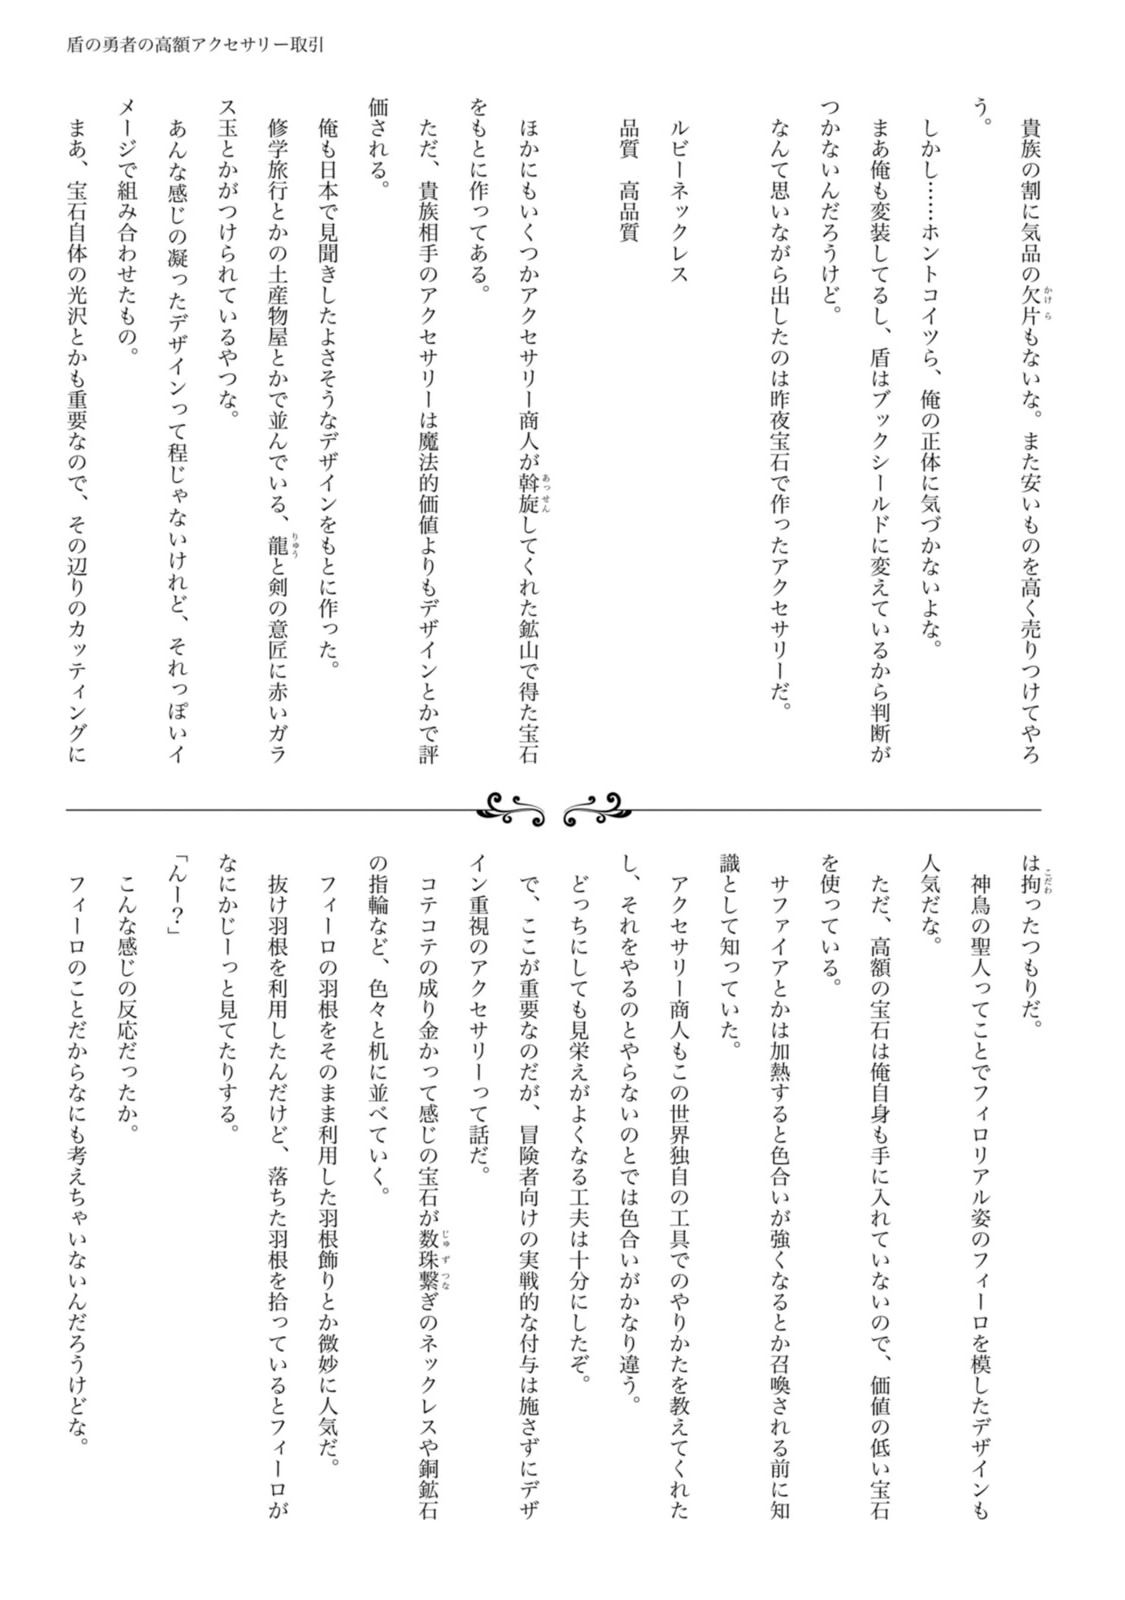 盾の勇者の高額アクセサリー取引
貴族の割に気品の欠片もないな。また安いものを高く売りつけてやろ
う。
しかし……ホントコイツら、俺の正体に気づかないよな。
まあ俺も変装してるし、盾はブックシールドに変えているから判断が
つかないんだろうけど。
なんて思いながら出したのは昨夜宝石で作ったアクセサリーだ。
ルビーネックレス
品質　高品質
ほかにもいくつかアクセサリー商人が斡旋してくれた鉱山で得た宝石
をもとに作ってある。
ただ、貴族相手のアクセサリーは魔法的価値よりもデザインとかで評
価される。
俺も日本で見聞きしたよさそうなデザインをもとに作った。
修学旅行とかの土産物屋とかで並んでいる、龍と剣の意匠に赤いガラ
ス玉とかがつけられているやつな。
あんな感じの凝ったデザインって程じゃないけれど、それっぽいイ
メージで組み合わせたもの。
まあ、宝石自体の光沢とかも重要なので、その辺りのカッティングに
は拘ったつもりだ。
神鳥の聖人ってことでフィロリアル姿のフィーロを模したデザインも
人気だな。
ただ、高額の宝石は俺自身も手に入れていないので、価値の低い宝石
を使っている。
サファイアとかは加熱すると色合いが強くなるとか召喚される前に知
識として知っていた。
アクセサリー商人もこの世界独自の工具でのやりかたを教えてくれた
し、それをやるのとやらないのとでは色合いがかなり違う。
どっちにしても見栄えがよくなる工夫は十分にしたぞ。
で、ここが重要なのだが、冒険者向けの実戦的な付与は施さずにデザ
イン重視のアクセサリーって話だ。
コテコテの成り金かって感じの宝石が数珠繋ぎのネックレスや銅鉱石
の指輪など、色々と机に並べていく。
フィーロの羽根をそのまま利用した羽根飾りとか微妙に人気だ。
抜け羽根を利用したんだけど、落ちた羽根を拾っているとフィーロが
なにかじーっと見てたりする。
「んー？」
こんな感じの反応だったか。
フィーロのことだからなにも考えちゃいないんだろうけどな。